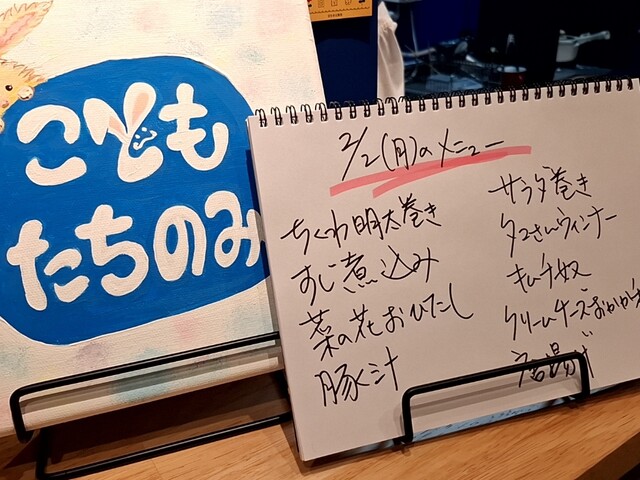 こども
たちのみ
2/2(月)のメニュー
ちくわ明太巻き
すじ煮込み
菜の花おひたし
豚汁
サラダ巻き
タコさんウィンナー
キムチ奴
クリームチーズおかか
唐揚げ